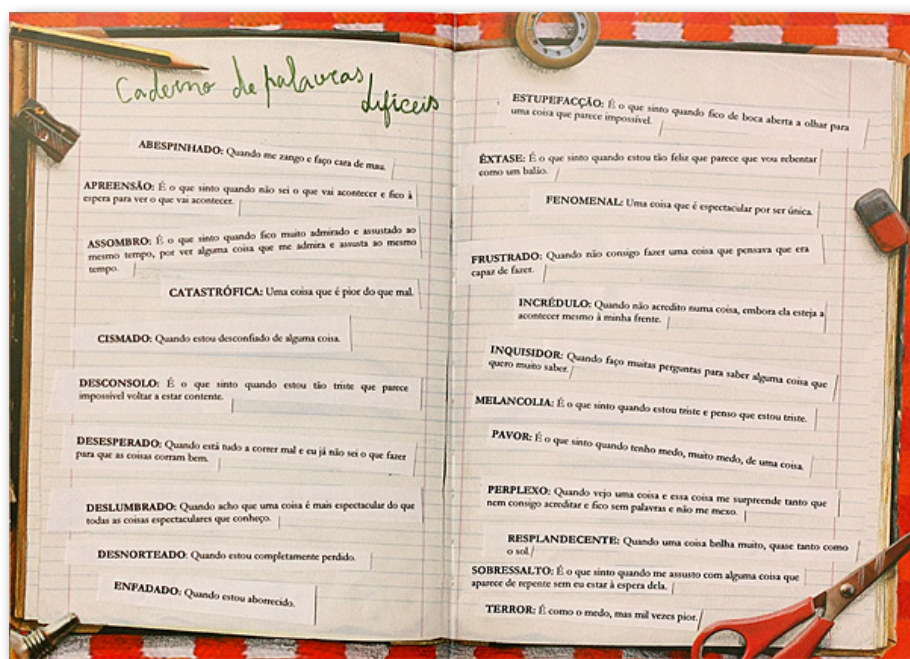 Caderno de palavras
difíceis
ABESPINHADO: Quando me zango e faço cara de mau.
APREENSÃO: É o que sinto quando não sei o que vai acontecer e fico à
espera para ver o que vai acontecer.
ASSOMBRO: É o que sinto quando fico muito admirado e assustado ao
mesmo tempo, por ver alguma coisa que me admira e assusta ao mesmo
tempo.
CATASTRÓFICA: Uma coisa que é pior do que mal.
CISMADO: Quando estou desconfiado de alguma coisa.
DESCONSOLO: É o que sinto quando estou tão triste que parece
impossível voltar a estar contente.
DESESPERADO: Quando está tudo a correr mal e eu já não sei o que fazer
para que as coisas corram bem.
DESLUMBRADO: Quando acho que uma coisa é mais espectacular do que
todas as coisas espectaculares que conheço.
DESNORTEADO: Quando estou completamente perdido.
ENFADADO: Quando estou aborrecido.
ESTUPEFACÇÃO: É o que sinto quando fico de boca aberta a olhar para
uma coisa que parece impossível.
ÊXTASE: É o que sinto quando estou tão feliz que parece que vou rebentar
como um balão.
FENOMENAL: Uma coisa que é espectacular por ser única.
FRUSTRADO: Quando não consigo fazer uma coisa que pensava que era
capaz de fazer.
INCRÉDULO: Quando não acredito numa coisa, embora ela esteja a
acontecer mesmo à minha frente.
INQUISIDOR: Quando faço muitas perguntas para saber alguma coisa que
quero muito saber.
MELANCOLIA: É o que sinto quando estou triste e penso que estou triste.
PAVOR: É o que sinto quando tenho medo, muito medo, de uma coisa.
PERPLEXO: Quando vejo uma coisa e essa coisa me surpreende tanto que
nem consigo acreditar e fico sem palavras e não me mexo.
RESPLANDECENTE: Quando uma coisa brilha muito, quase tanto como
o sol.
SOBRESSALTO: É o que sinto quando me assusto com alguma coisa que
aparece de repente sem eu estar à espera dela.
TERROR: É como o medo, mas mil vezes pior.